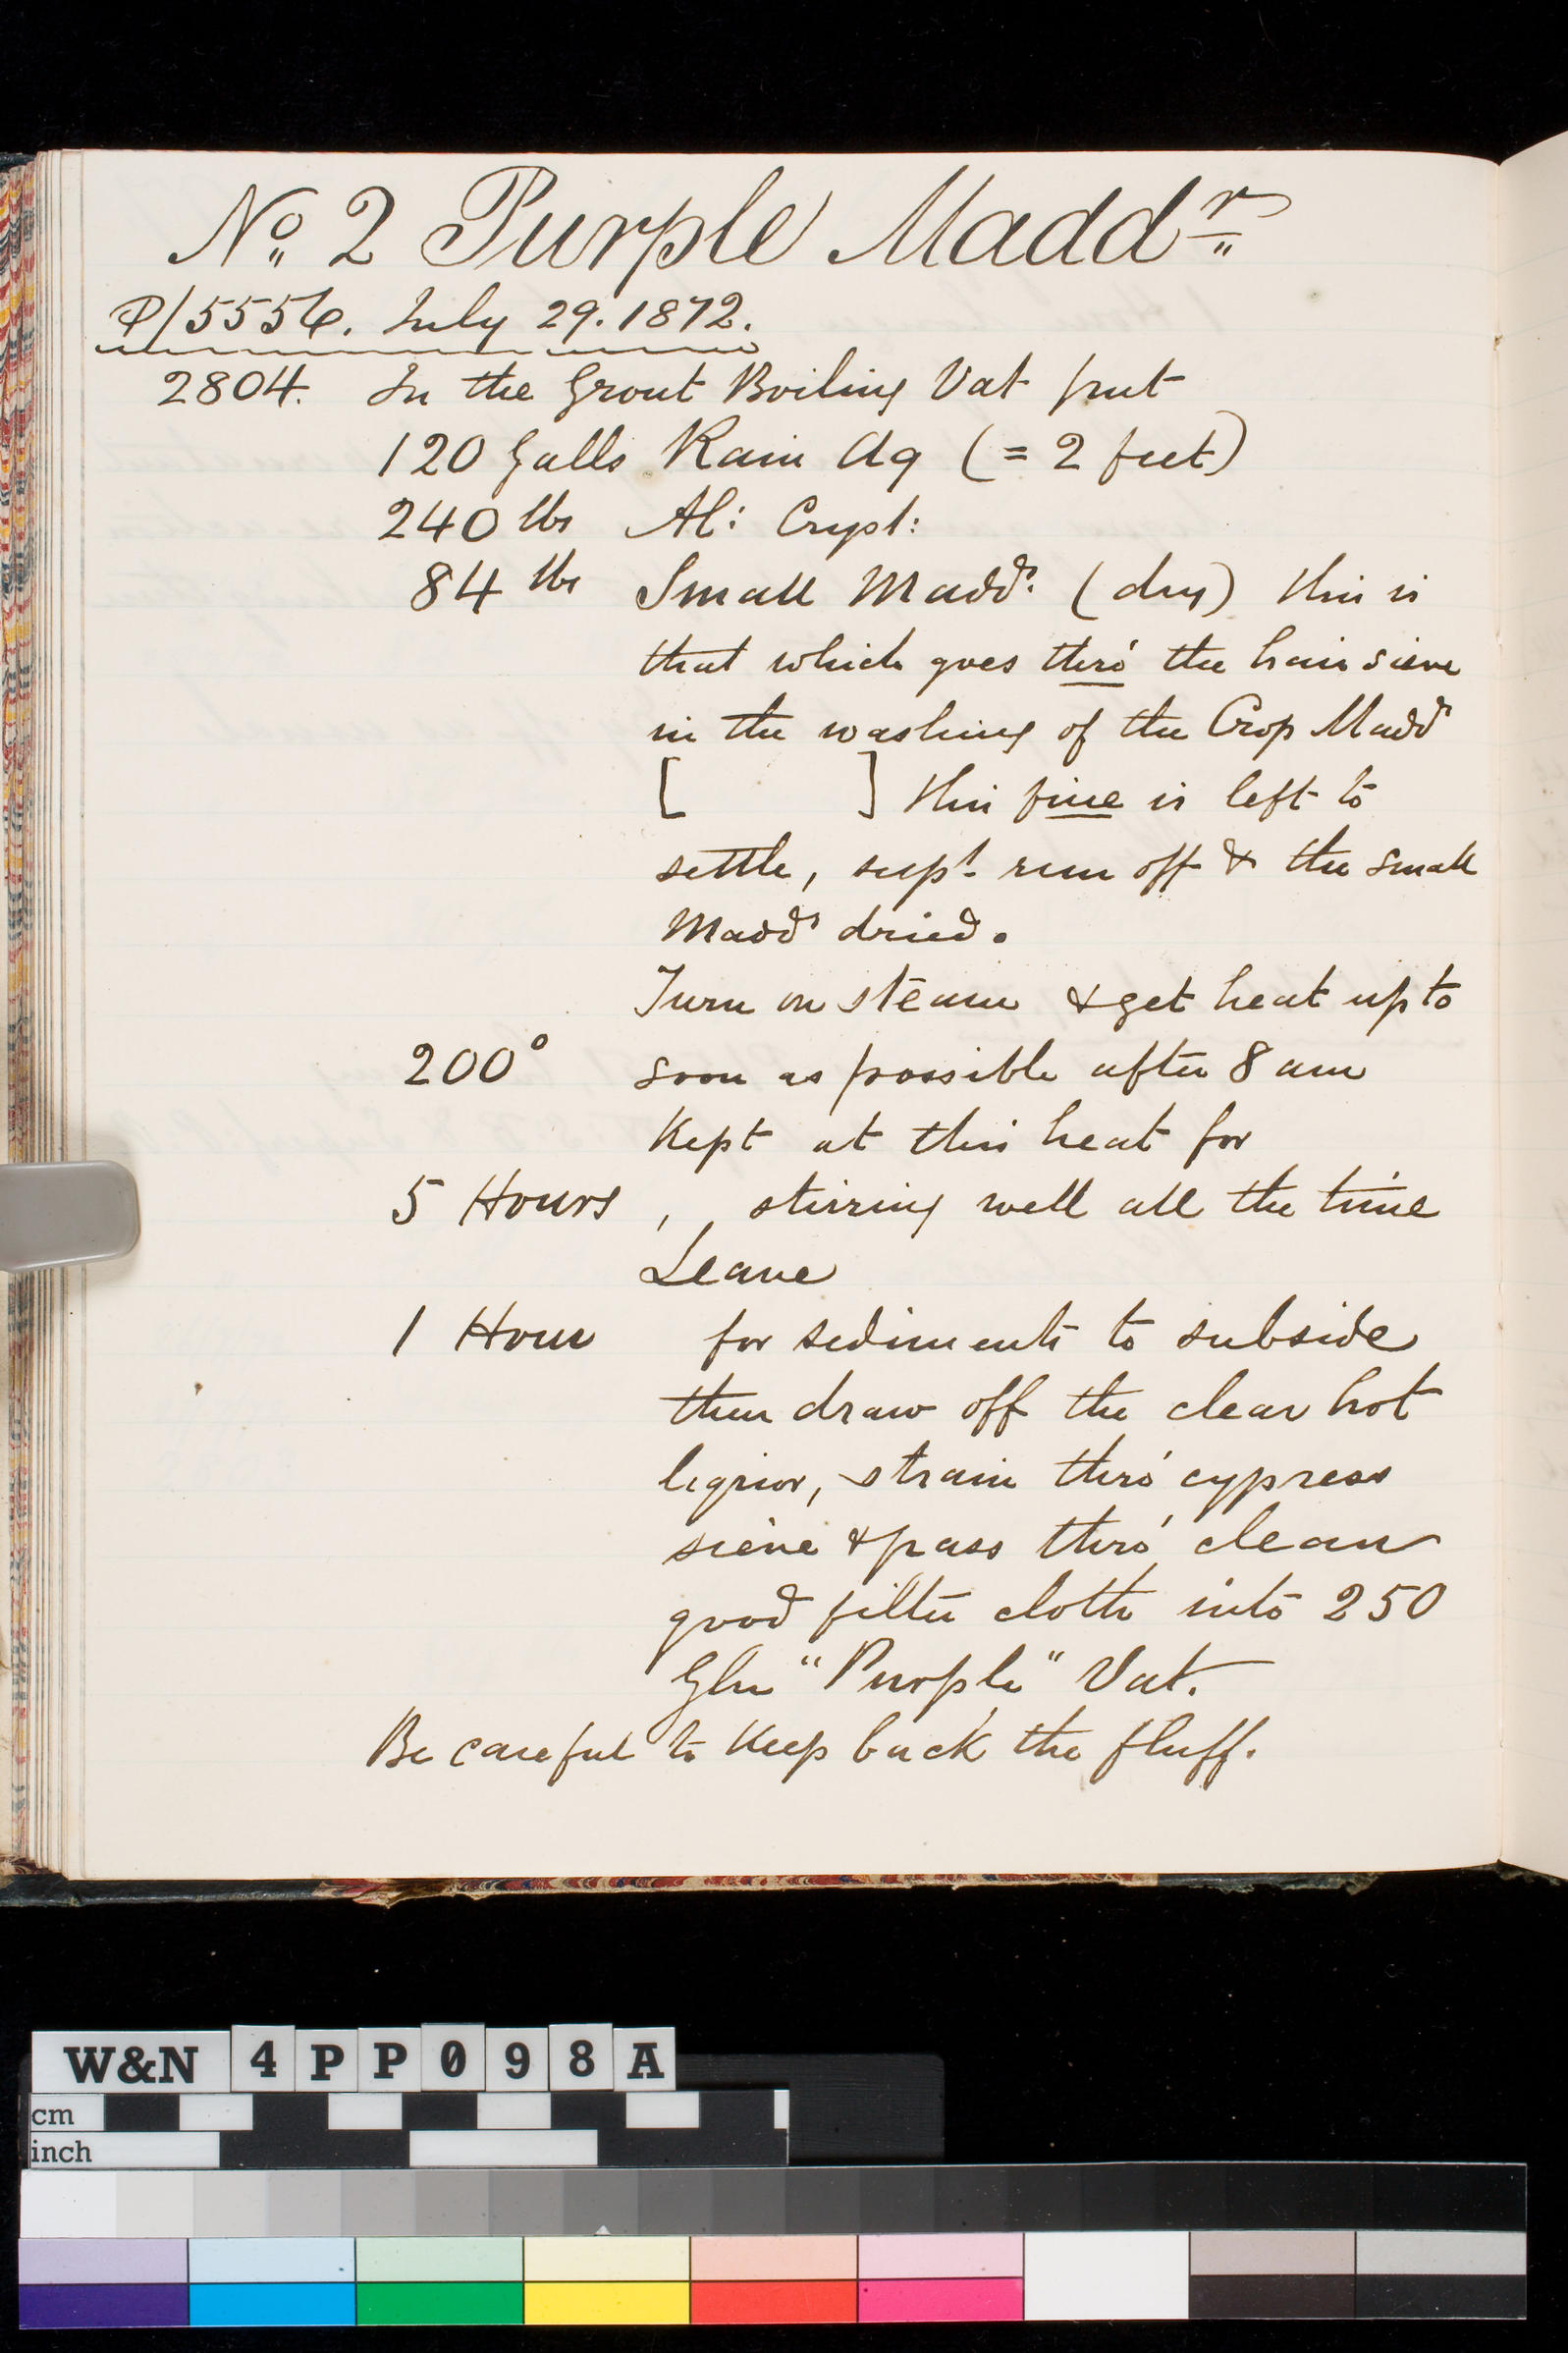 No. 2 Purple Maddr
P/5556. July 29. 1872.
2804. In the Grout Boiling Vat put
120 Galls Rain Aq (= 2 feet)
240 lbs Al: Cryst:
84 lbs Small Maddr. (dry) this is
that which goes thro' the hair sieve
in the washing of the Crop Maddr
[ ] this fine is left to
settle, supt. run off & the small
Maddr dried.
Turn on steam & get heat up to
200° soon as possible after 8 am
Kept at this heat for
5 Hours, , stirring well all the time
Leave
1 Hour for sediments to subside
then draw off the clear hot
liquor, strain thro' cypress
sieve & pass thro' clean
good filter cloth into 250
Gln "Purple" Vat.
Be careful to keep back the fluff.
W&N 4PP098A
cm
inch